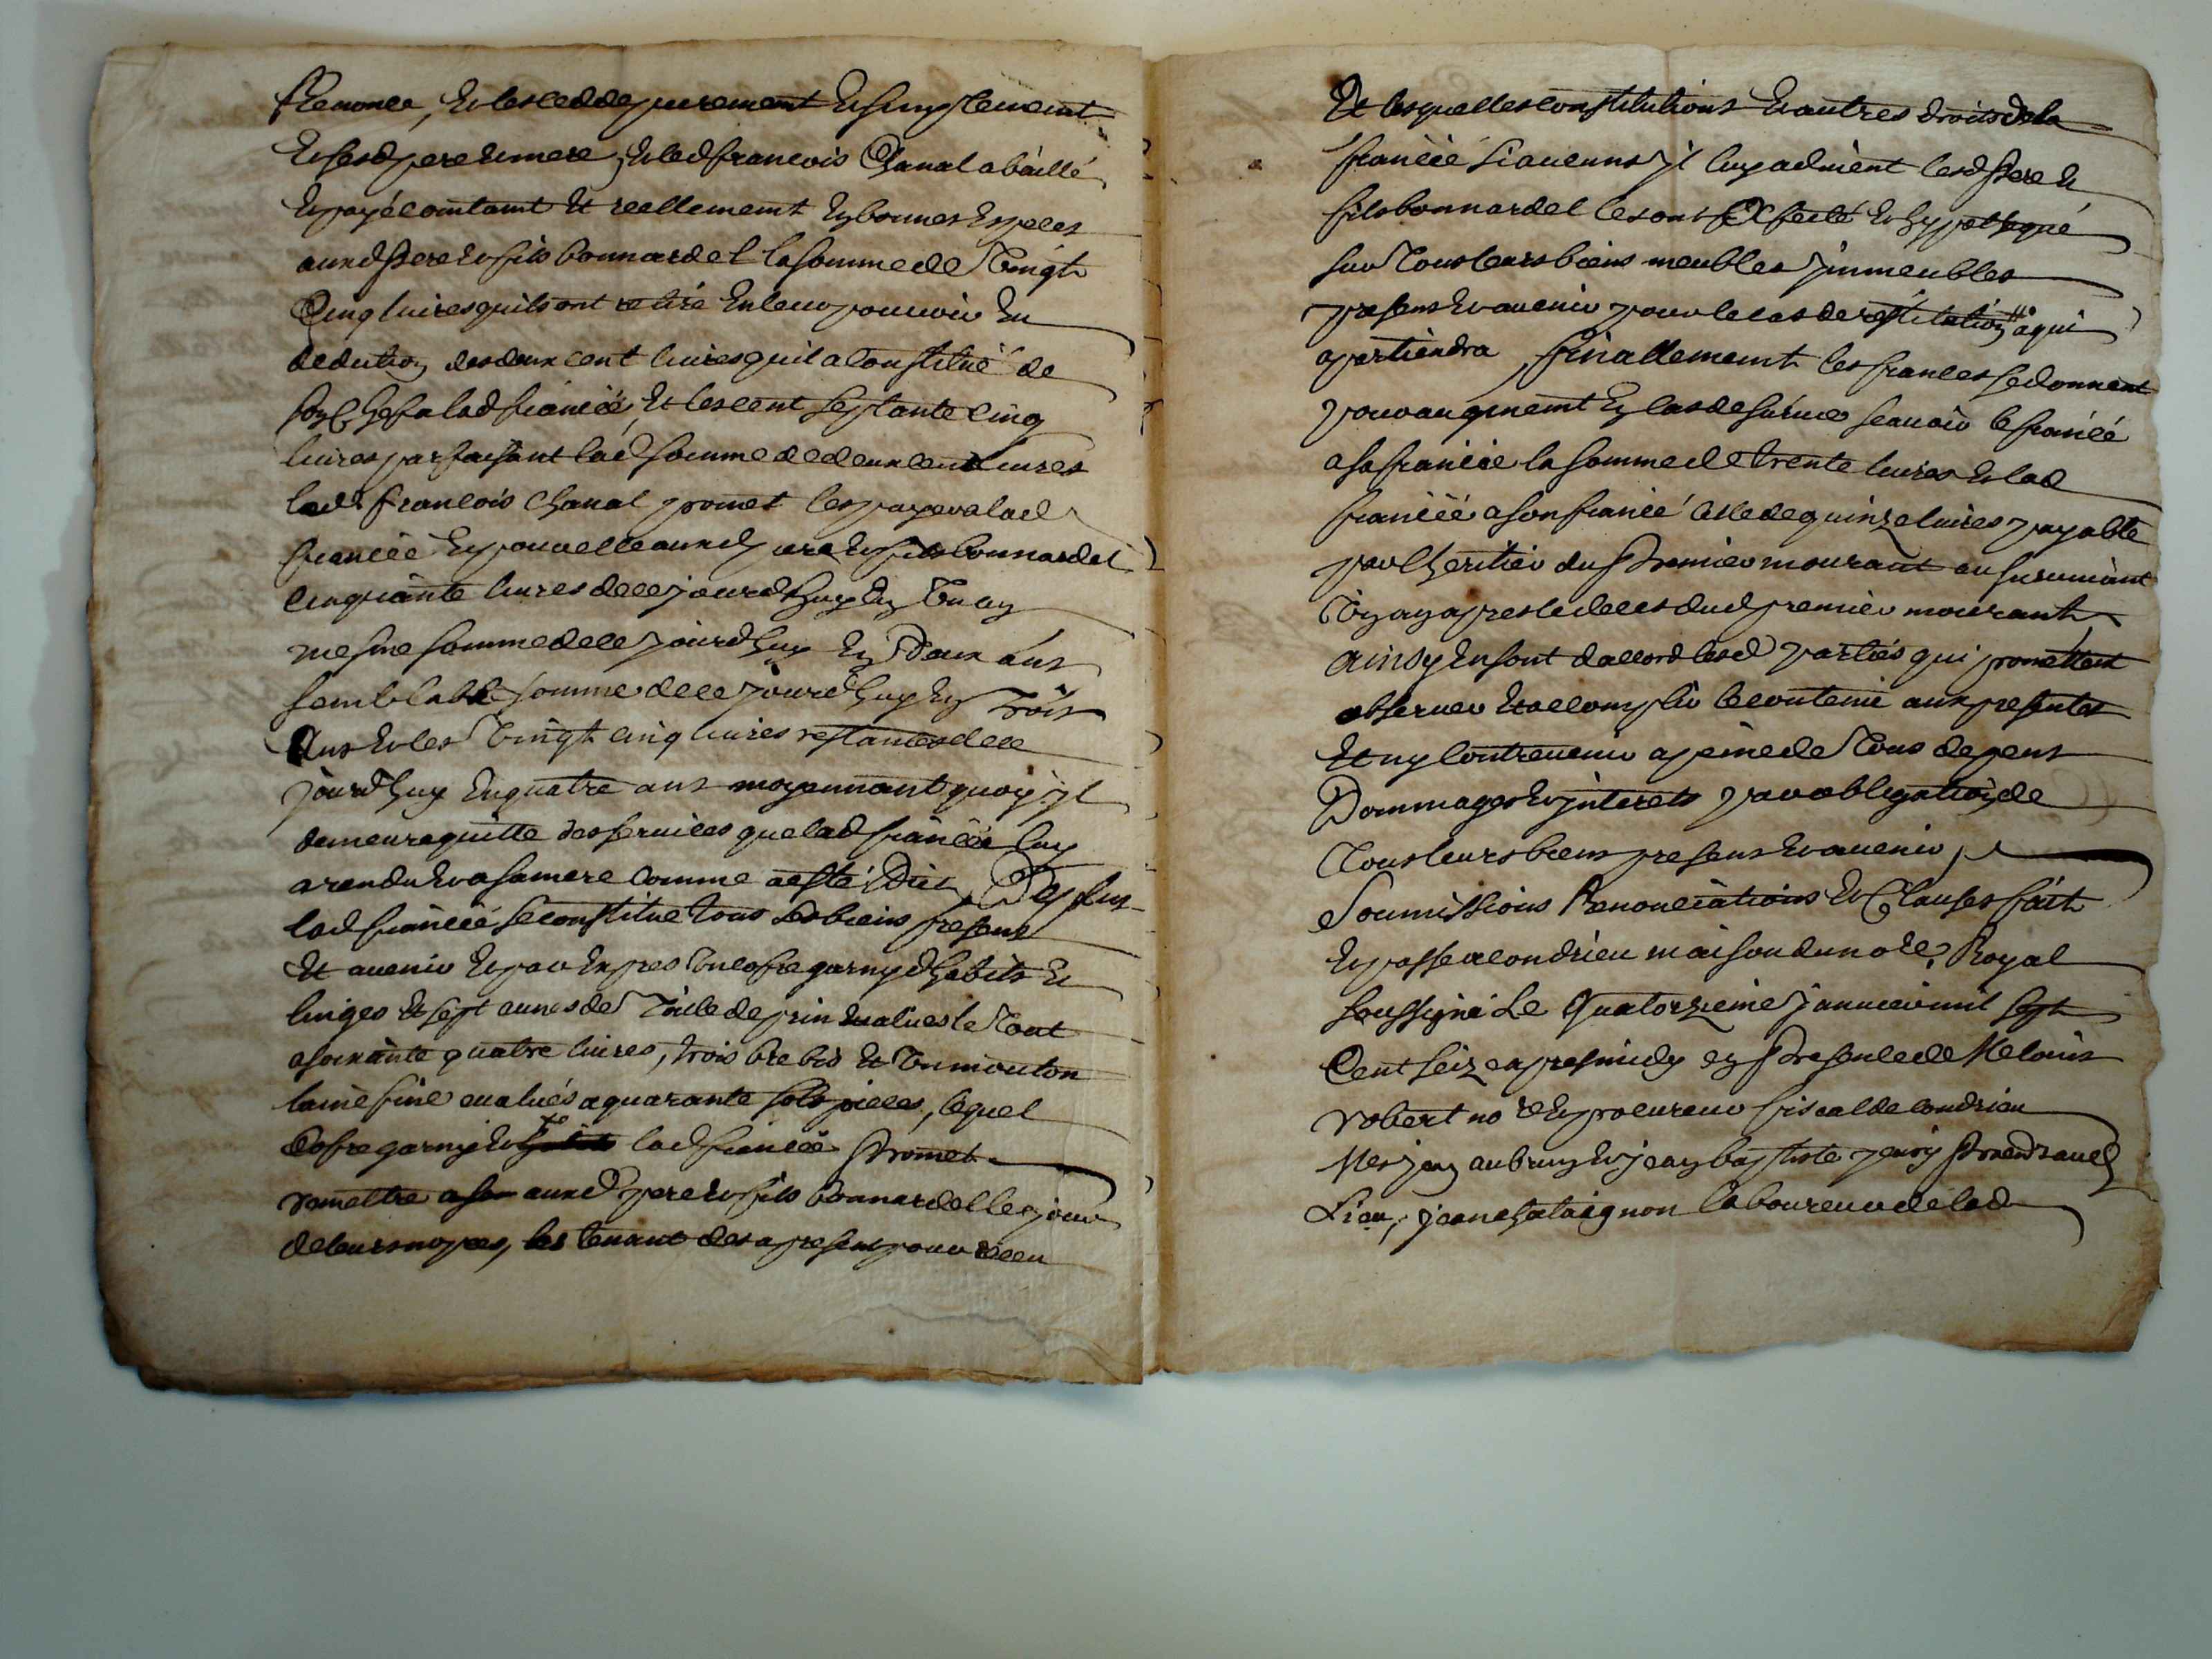 Renonce, et les cedde purement et simplement
et sesd pere et mere, et led francois Chanal a baillé
et payé comtamt et reellement en bonnes especes
auxd pere et fils bonnardel la somme de Vingt
Cinq livres quils ont retiré en leur pouvoir en
dedution desdeux cent livres quil a constitué de
son chef a lad fiancéé, et les cent septante cinq
livres parfaisant lad somme de deux cent livres
led francois Chanal promet les payer a lad
fiancéé et pour elle auxd pere et fils bonnardel
cinquante livres de ce jourdhuy en Un an
mesme somme de ce jourdhuy en Deux ans
semblable somme de ce jourdhuy en Trois
Ans et les Vingt cinq livres restantes de ce
jourdhuy en quatre ans moyennant quoy jl
demeure quitte des services que lad fiancéé luy
a rendu et a sa mere comme a esté Dict, De plus
lad fiancéé se constitue tous ses biens presens
et avenir et par expres Un cofre garny dhabits et
linges et sept aunes de Toile de prin evalués le Tout
a soixante quatre livres, trois brebis et Un mouton
laine fine evalués a quarante sols pieces, lequel
Cofre garny et lad fiancéé Promet
remettre a son auxd pere et fils bonnardel le jour
de leurs nopces, les tenant des a present pour receu
Et lesquelles constitutions et autres droits de la
fiancéé si aucuns jl luy advient lesd Pere et
fils bonnardel les ont Affecté et hypothequé
sur Tous leurs biens meubles jmmeubles
presens et avenir pour le cas de restitution a qui
apertiendra, finallement les fiances se donnent
pour augment en cas de survie scavoir le fiancé
a sa fiancéé la somme de trente livres et lad
fiancéé a son fiancé celle de quinze livres payable
par lheritier du Premier mourant au survivant
Un an apres le deces dud premier mourant,
Ainsy en sont daccord lesd parties qui promettent
observer et accomplir le contenu aux presentes
et ny contrevenir a peine de Tous depens
Dommages et jnterets par obligation de
Tous leurs biens presens et avenir,
Soumissions Renonciations et Clauses fait
et passé a condrieu maison du nore Royal
soussigné Le Quatorzieme janvier mil sept
Cent seize apres midy en Presence de Me louis
robert nore et procureur fiscal de condrieu
Mes jean aubrun et jean baptiste
Lieu, jean chataignon laboureur de lad